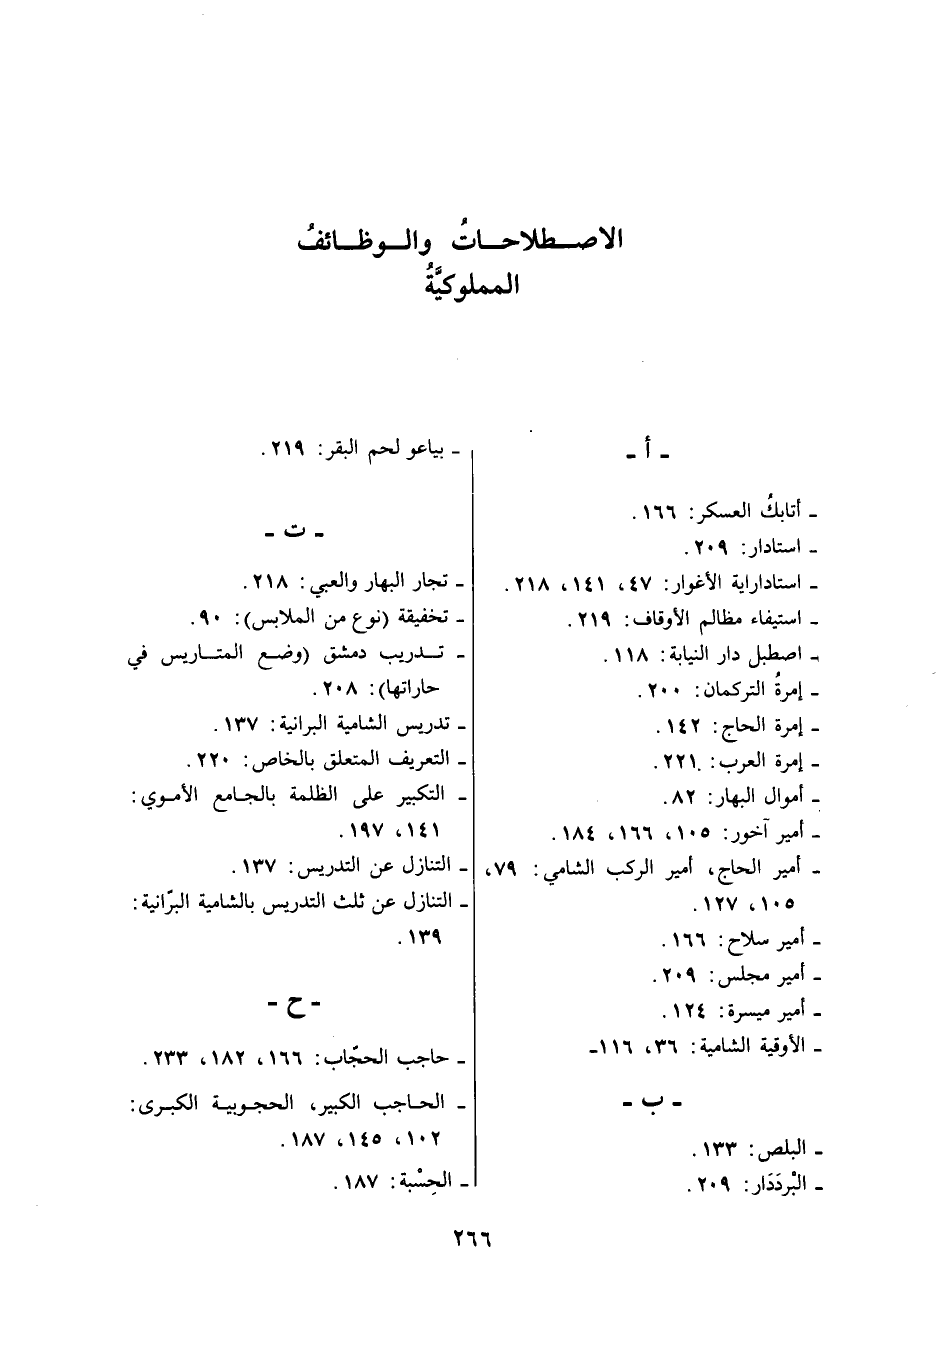 الاصطلاحاتُ والوظائفُ
المملوكيَّةُ
- أ -
- أتابكُ العسكر: ١٦٦.
- استادار: ٢٠٩.
- استاداراية الأغوار: ٤٧، ١٤١، ٢١٨.
- استيفاء مظالم الأوقاف: ٢١٩.
- اصطبل دار النيابة: ١١٨.
- إمرةُ التركمان: ٢٠٠.
- إمرة الحاج: ١٤٢.
- إمرة العرب: ٢٢١.
- أموال البهار: ٨٢.
- أمير آخور: ١٠٥، ١٦٦، ١٨٤.
- أمير الحاج، أمير الركب الشامي: ٧٩،
١٠٥، ١٢٧.
- أمير سلاح: ١٦٦.
- أمير مجلس: ٢٠٩.
- أمير ميسرة: ١٢٤.
- الأوقية الشامية: ٣٦، ١١٦-
- ب -
- البلص: ١٣٣.
- البْردَدَار: ٢٠٩.
- بياعو لحم البقر: ٢١٩.
- ت -
- تجار البهار والعبي: ٢١٨.
- تخفيقة (نوع من الملابس): ٩٠.
- تدريب دمشق (وضع المتاريس في
حاراتها): ٢٠٨.
- تدريس الشامية البرانية: ١٣٧.
- التعريف المتعلق بالخاص: ٢٢٠.
- التكبير على الظلمة بالجامع الأموي:
١٤١، ١٩٧.
- التنازل عن التدريس: ١٣٧.
- التنازل عن ثلث التدريس بالشامية البرّانية:
١٣٩.
- ح -
- حاجب الحجّاب: ١٦٦، ١٨٢، ٢٣٣.
- الحاجب الكبير، الحجوبية الكبرى:
١٠٢، ١٤٥، ١٨٧.
- الحِسْبة: ١٨٧.
٢٦٦